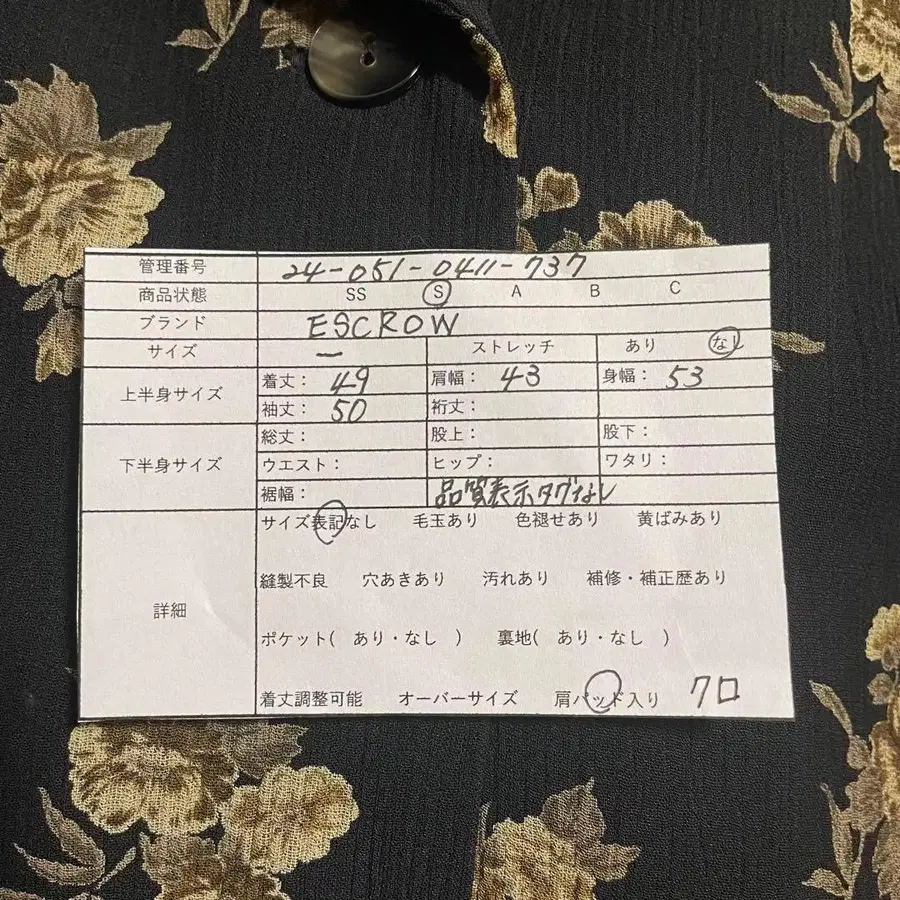 管理番号 24-051-0411-737
商品状態 SS S A B C
ブランド ESCROW
サイズ ー ストレッチ あり なし
上半身サイズ 着丈: 49 肩幅: 43 身幅: 53
袖丈: 50 裄丈:
下半身サイズ 総丈: 股上: 股下:
ウエスト: ヒップ: ワタリ:
裾幅: 品質表示タグなし
詳細 サイズ表記なし 毛玉あり 色褪せあり 黄ばみあり
縫製不良 穴あきあり 汚れあり 補修・補正歴あり
ポケット( あり・なし ) 裏地( あり・なし )
着丈調整可能 オーバーサイズ 肩パッド入り クロ